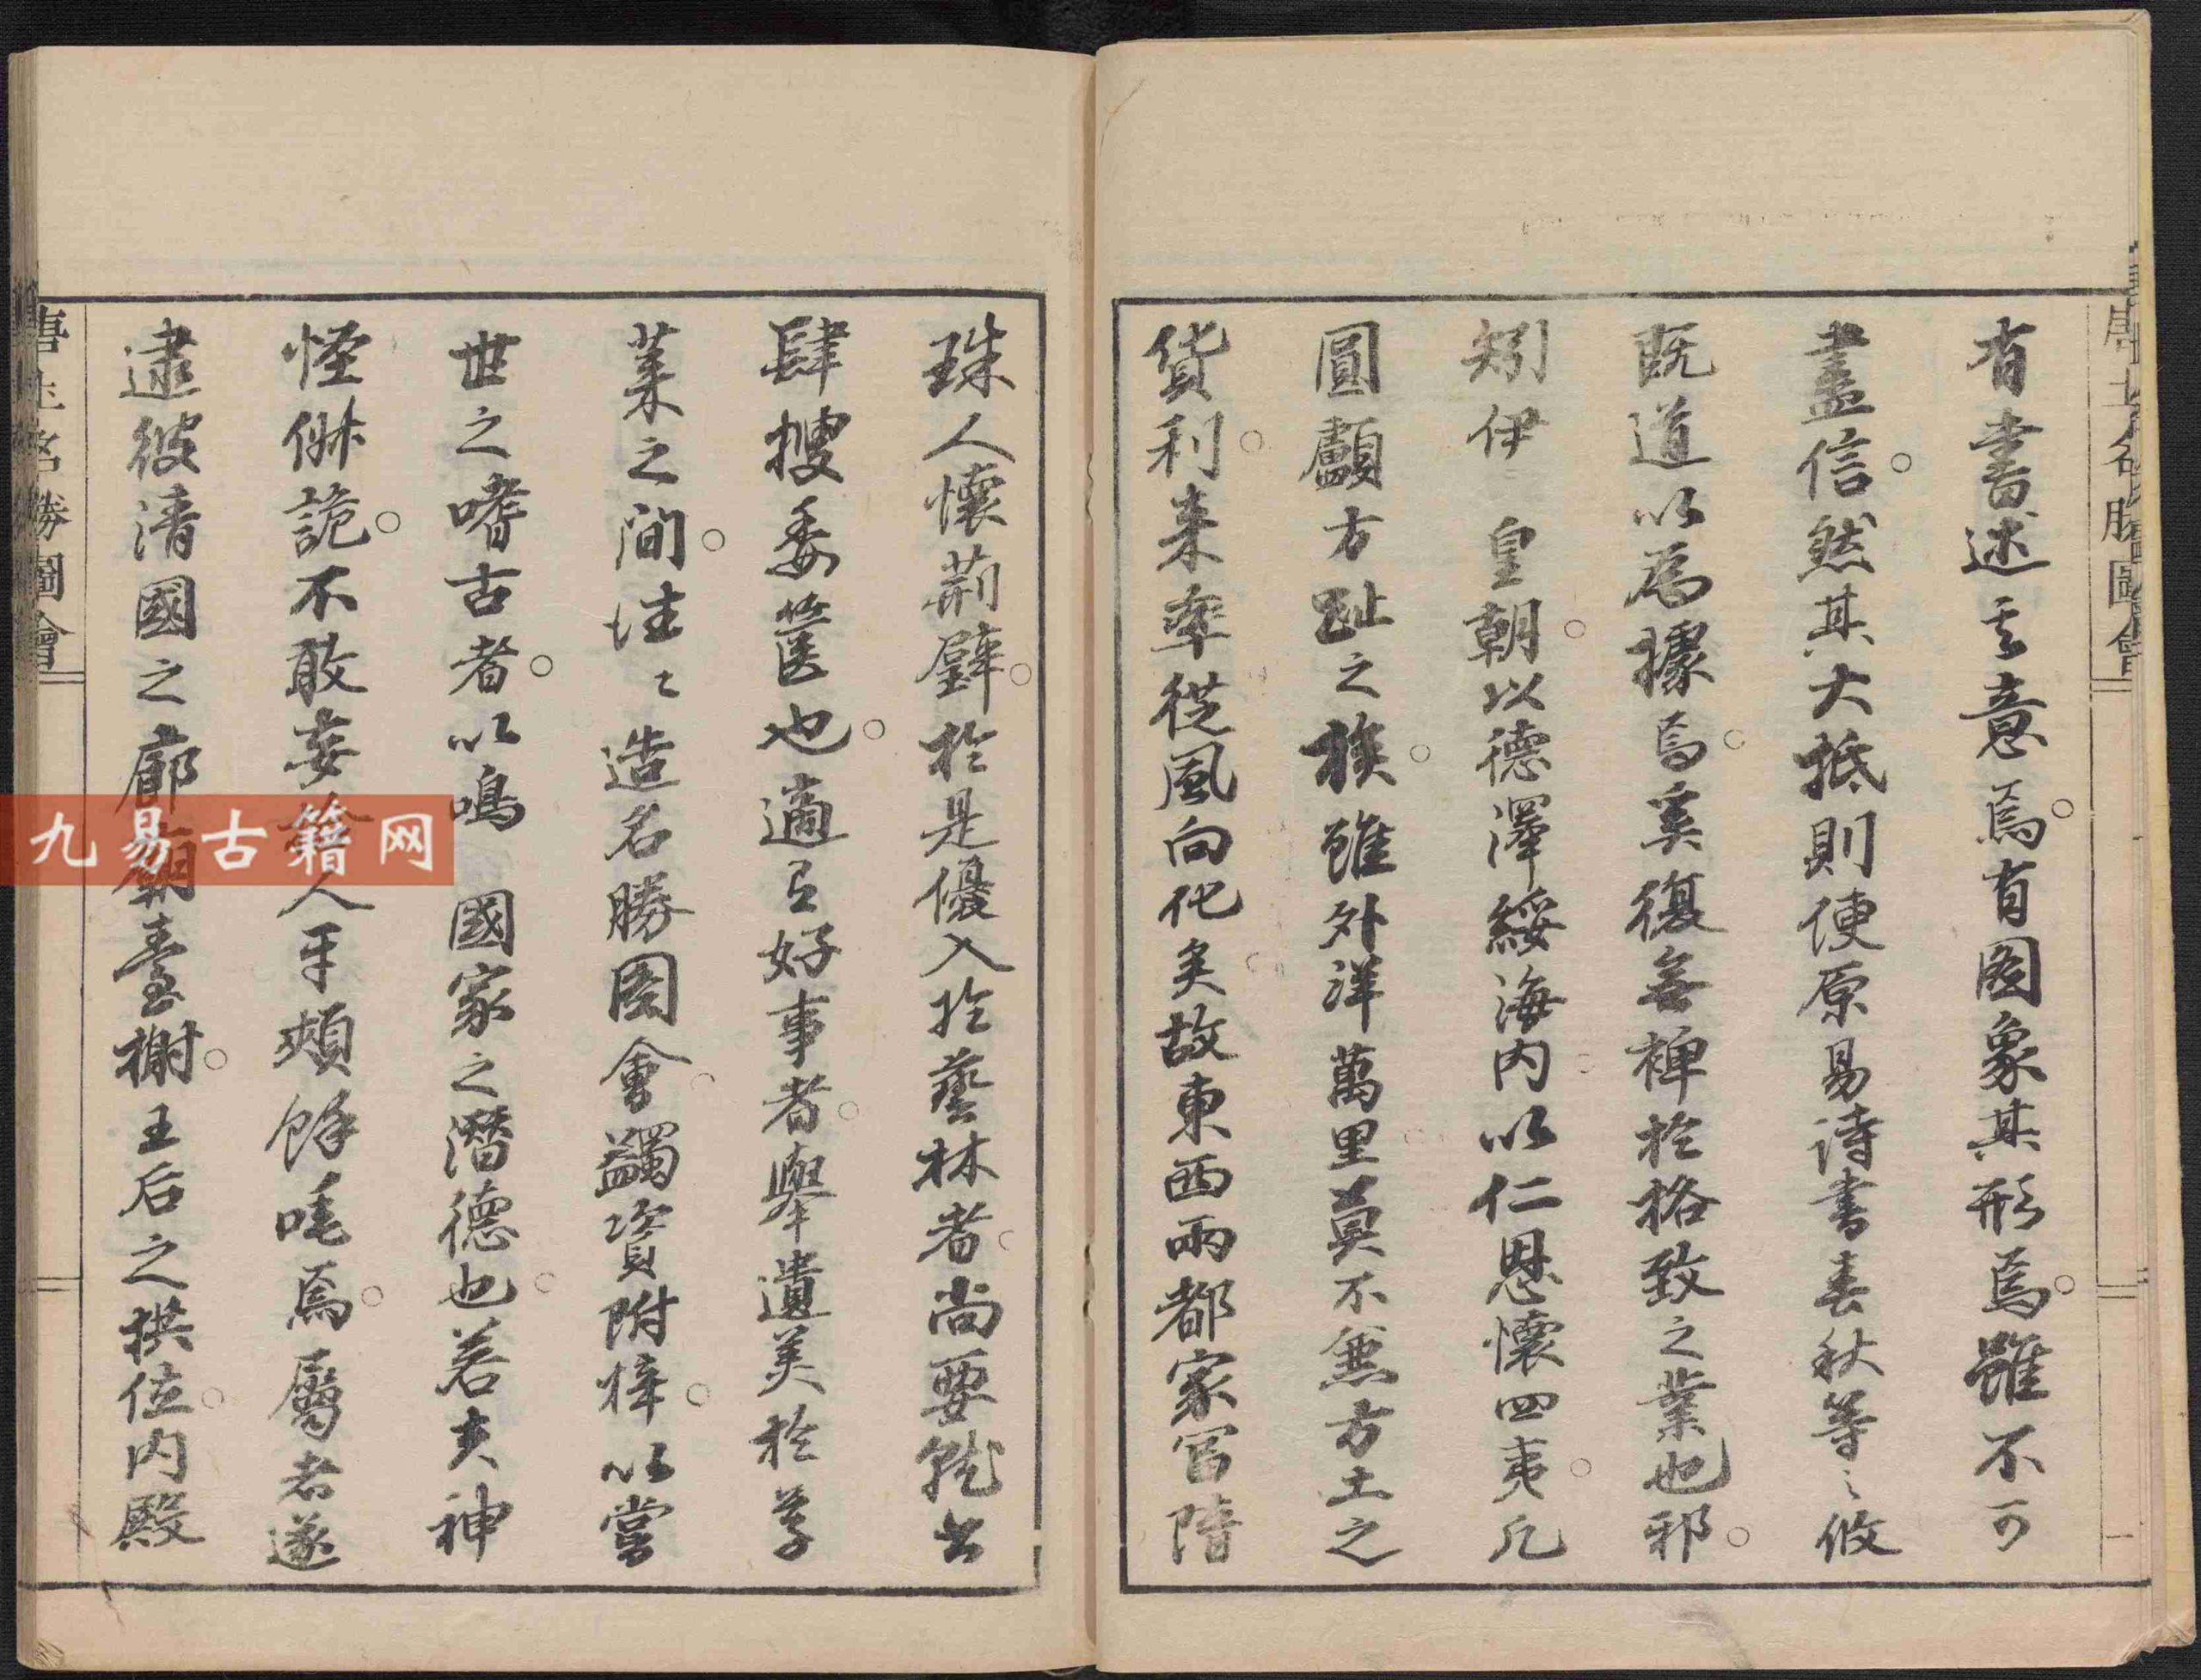 唐土名勝圖會
有書述其意焉有图象其形焉雖不可
盡信然其大抵則便原易詩書春秋等之攸
既道以為據焉奚復無裨於格致之業也邪
矧伊 皇朝以德澤綏海內以仁恩懷四夷凡
圓顱方趾之族雖外洋萬里莫不無方土之
貨利来率從風向化矣故東西兩都家冨隋
珠人懷荊璧於是優入於藝林者尚要就書
肆搜委篋也適有好事者舉遺美於草
菜之間往々造名勝图會蠲資附梓以當
世之嗜古者以鳴 國家之潛德也若夫神
怪俶詭不敢妄人牙頰餘唾焉屬者遂
逮彼清國之廊廟臺榭王后之拱位内殿
唐土名勝圖會
九易古籍网